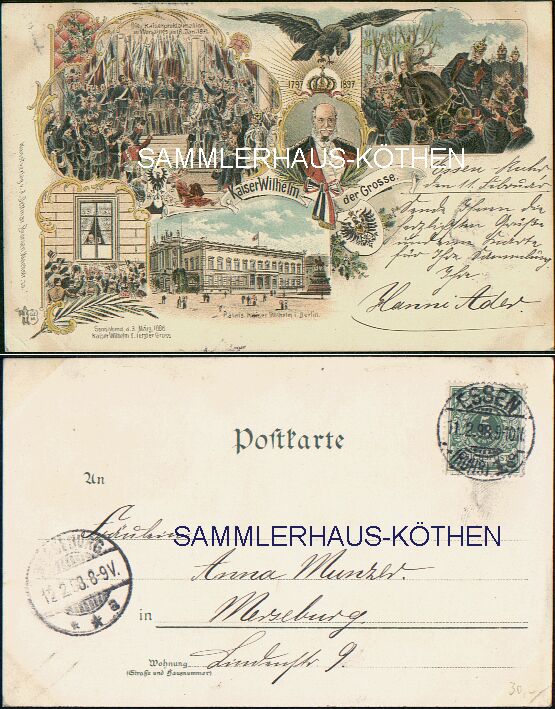 Die Kaiserproklamation
in Versailles am 18. Jan. 1871.
1797 1897
SAMMLERHAUS-KÖTHEN
Kaiser Wilhelm der Grosse.
Essen Ruhr
den 11. Februar
Sende Ihnen die
herzlichsten Grüße
und eine Karte
für Ihre Sammlung
Ihre
Hanni Ader.
Palais Kaiser Wilhelm I. Berlin.
Sonnabend, d. 3. März, 1888
Kaiser Wilhelm I. letzter Gruss
Postkarte
ESSEN
11.2.98.9-10N.
(RUHR)
An
Fräulein
SAMMLERHAUS-KÖTHEN
Anna Munzer.
in Merseburg.
12.2.98.8-9V.
a
Wohnung
(Straße und Hausnummer)
Lindenstr 9.
30,-